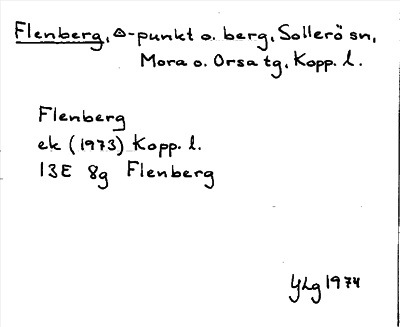 Flenberg, △-punkt o. berg, Sollerö sn,
Mora o. Orsa tg, Kopp. l.
Flenberg
ek (1973) Kopp. l.
13E 8g Flenberg
YLg 1974